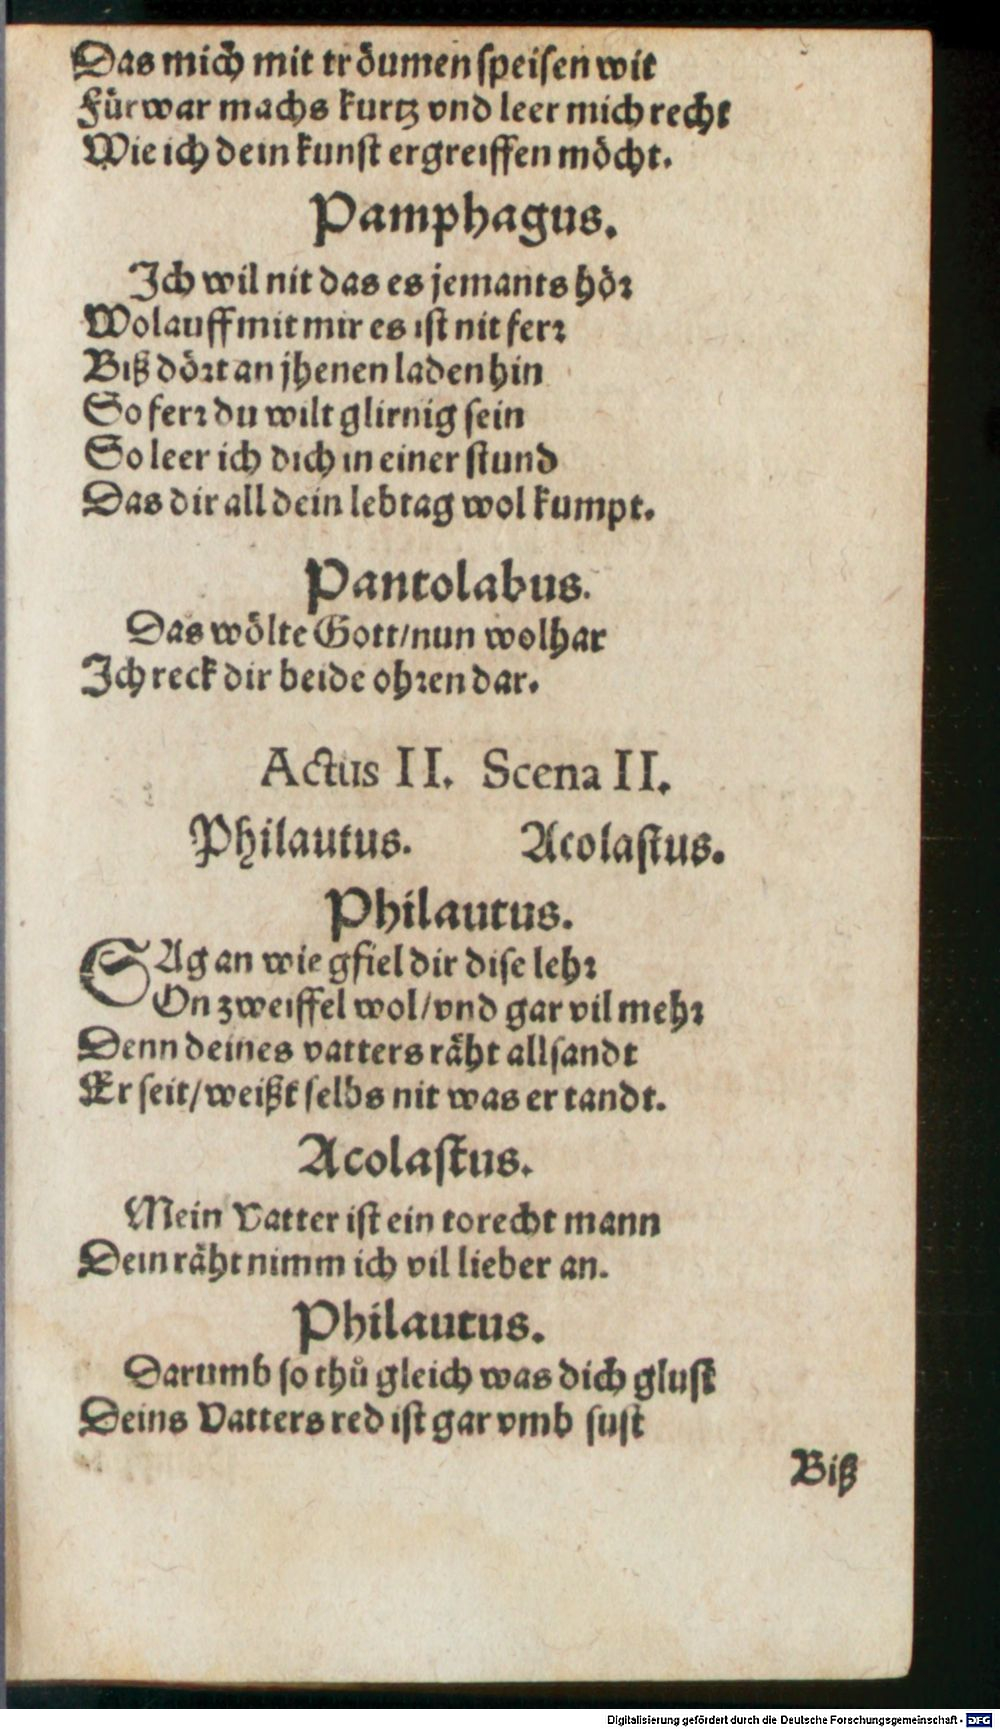 Das mich mit tröumen speisen wit
Fürwar machs kurtz vnd leer mich recht
Wie ich dein kunst ergreiffen möcht.
Pamphagus.
Ich wil nit das es jemants hör
Wolauff mit mir es ist nit ferr
Biß dört an jhenen laden hin
So ferr du wilt glirnig sein
So leer ich dich in einer stund
Das dir all dein lebtag wol kumpt.
Pantolabus.
Das wölte Gott/nun wolhar
Ich reck dir beide ohren dar.
Actus II. Scena II.
Philautus. Acolastus.
Philautus.
SAg an wie gfiel dir dise lehr
On zweiffel wol/vnd gar vil mehr
Denn deines vatters räht allsandt
Er seit/weißt selbs nit was er tandt.
Acolastus.
Mein Vatter ist ein torecht mann
Dein räht nimm ich vil lieber an.
Philautus.
Darumb so thů gleich was dich glust
Deins Vatters red ist gar vmb sust
Biß
Digitalisierung gefördert durch die Deutsche Forschungsgemeinschaft - DFG